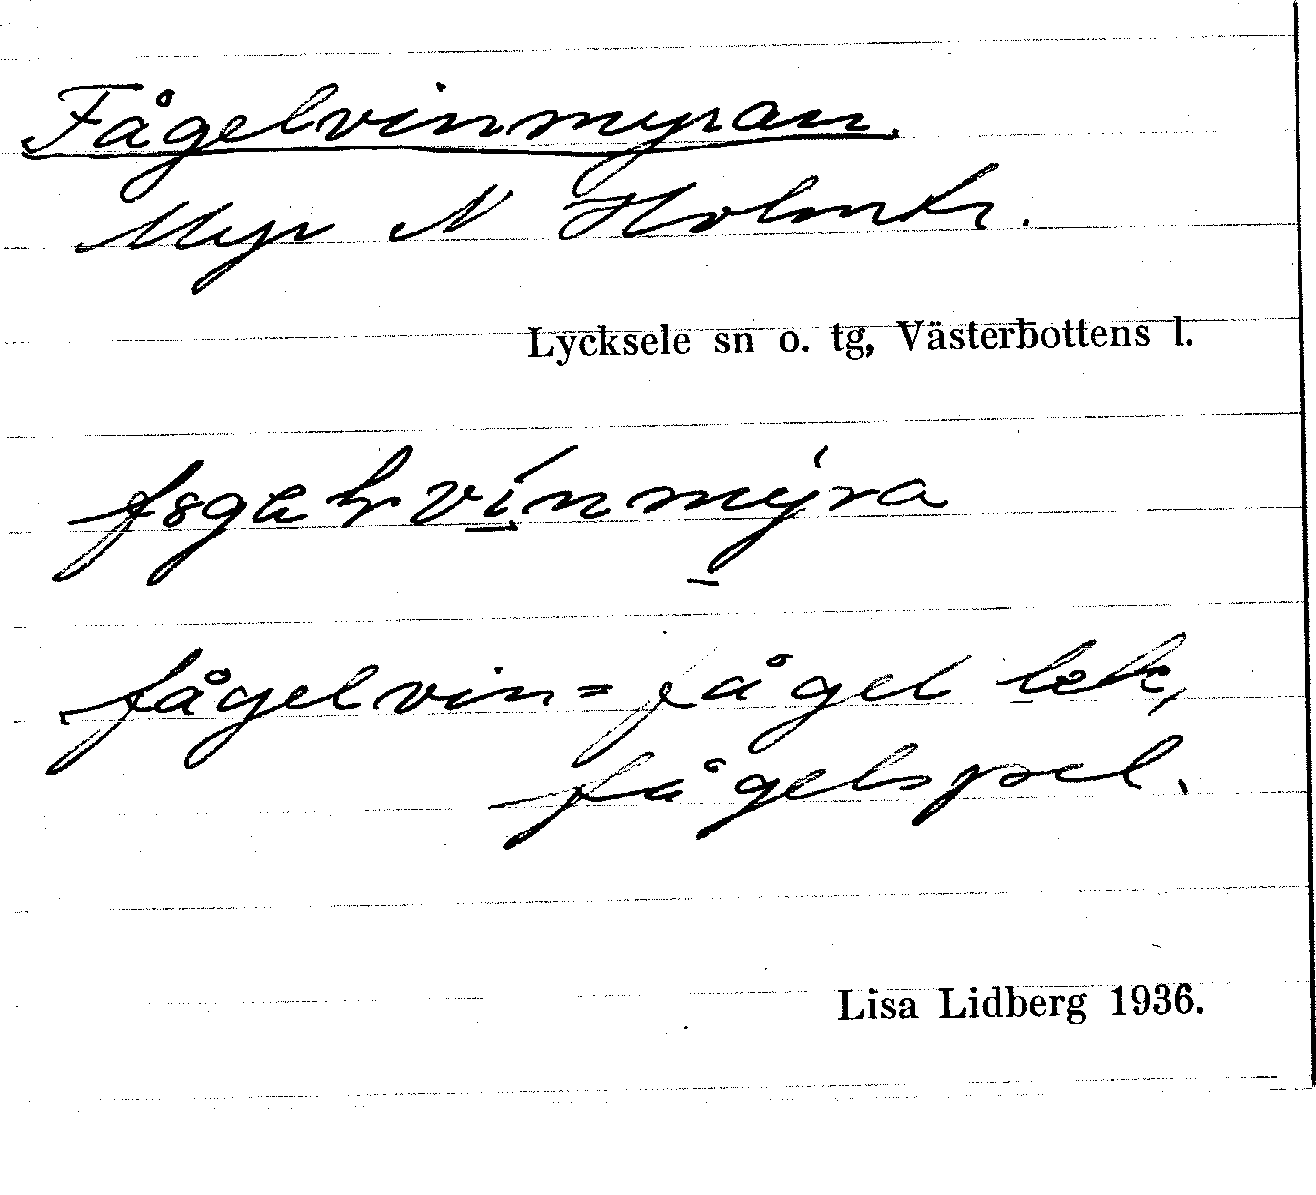 Fågelvinmyran.
Myr N Holmtr.
Lycksele sn o. tg, Västerbottens l.
fågelvin = fågellek,
fågelspel.
Lisa Lidberg 1936.